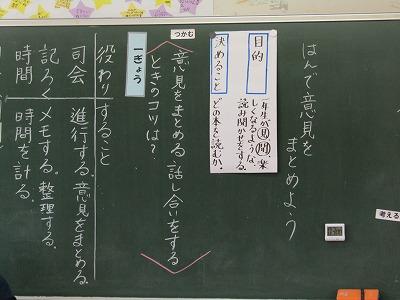 はんで意見を
まとめよう
目的
一年生が見聞、楽
しくなるような、
読み聞かせをする。
決めること
どの本を読むか。
つかむ
意見をまとめる話し合いをする
ときのコツは？
一ぎょう
役わり すること
司会 進行する。意見をまとめる。
記ろく メモする。整理する。
時間 時間を計る。
考える